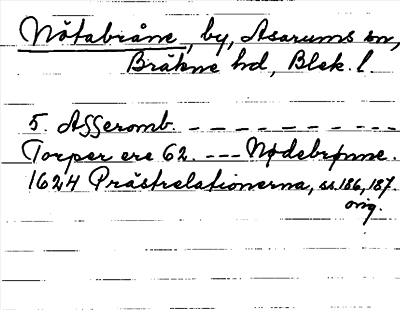 Nötabråne, by, Asarums sn,
Bräkne hd, Blek. l.
5. Asseromb. - - - - - - - - - -
Torper ere 62. --- Nødebrønne.
1624 Prästrelationerna, ss. 186, 187.
orig.